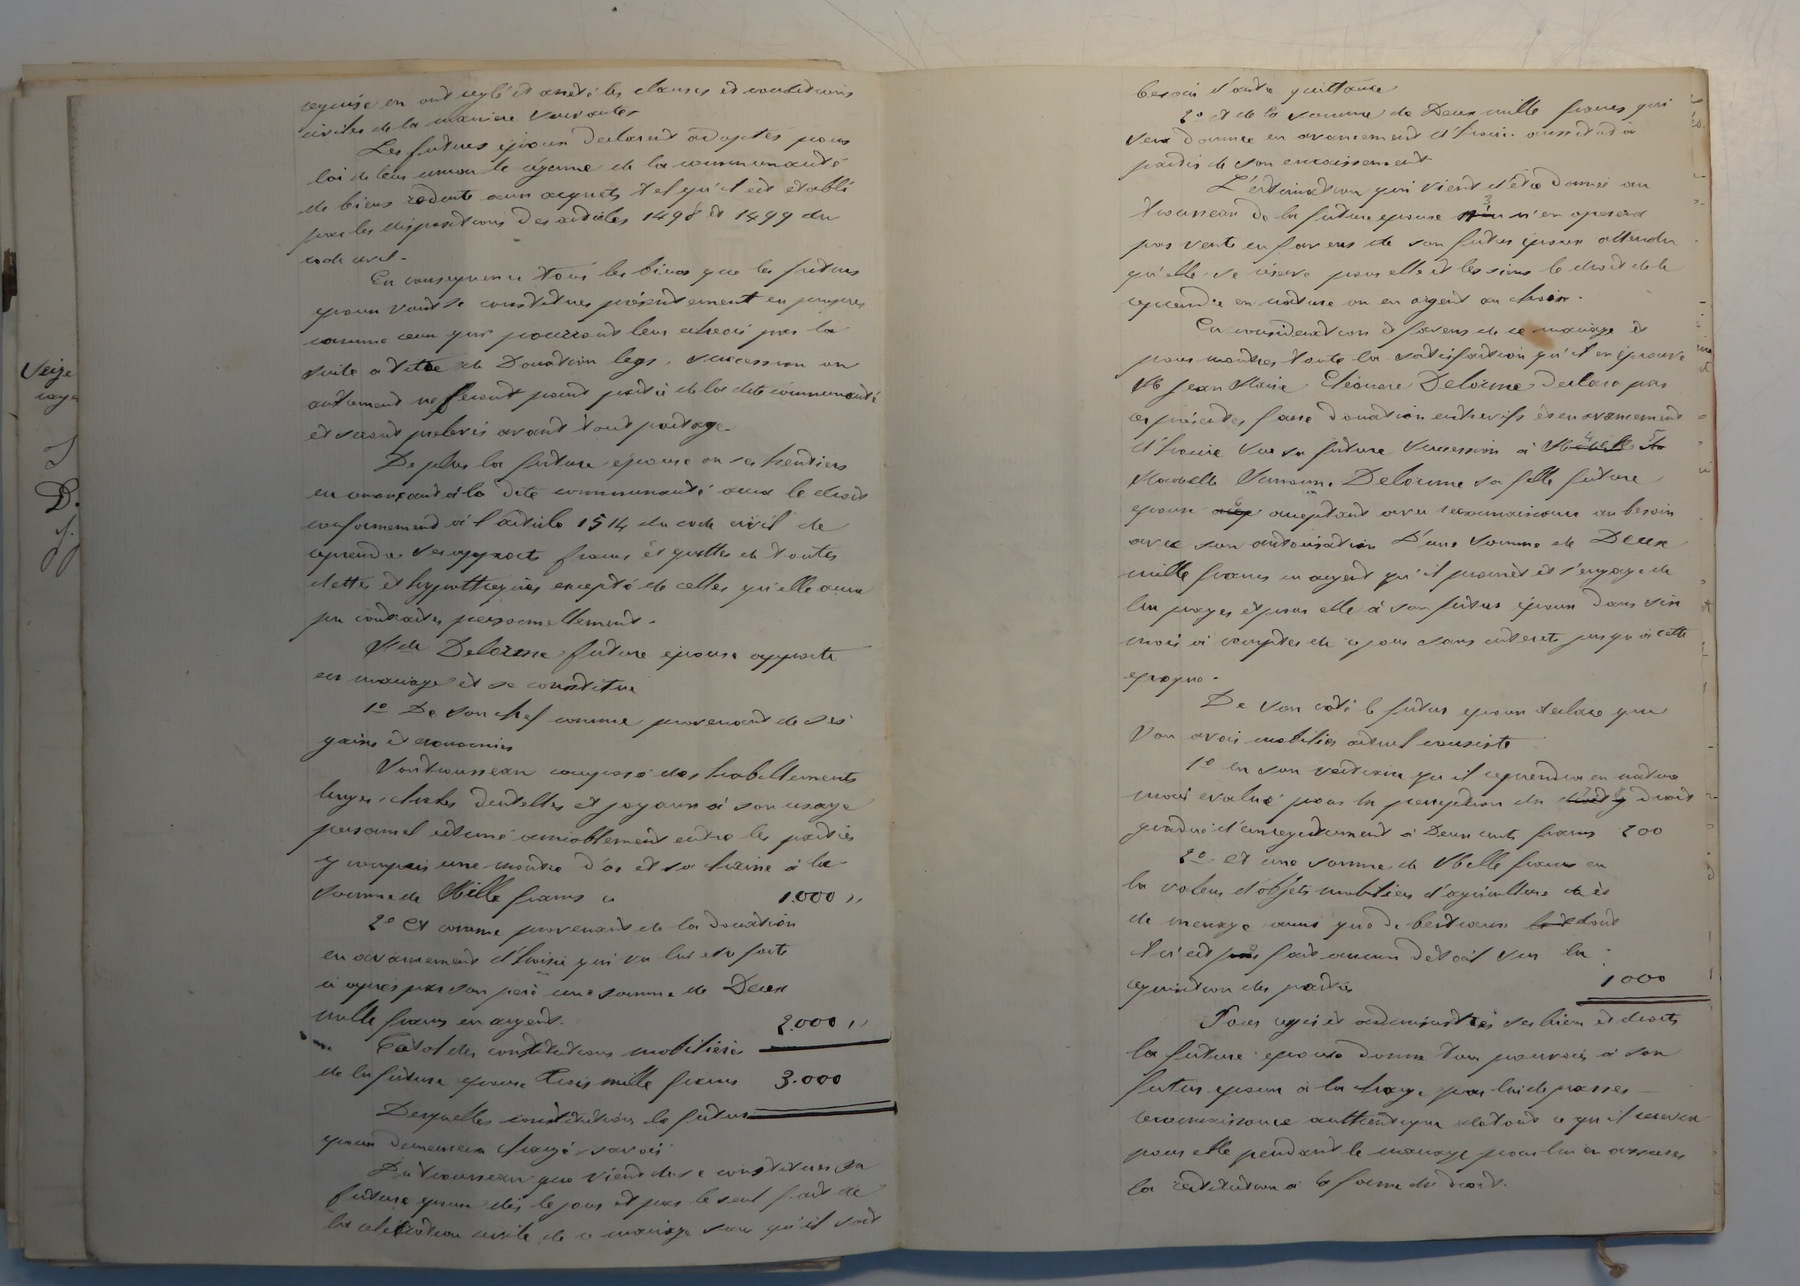 Seize
requise en ont réglé et arrêté les clauses et conditions
civiles de la manière suivantes
Les futurs époux declarent adopter pour
loi de leur union le régime de la communauté
de biens réduite aux acquets tel qu'il est établi
par les dispositions des articles 1498 et 1499 du
code civil.
En consequence tous les biens que les futurs
époux vont se constituer présentement en propres
comme ceux qui pourront leur echeoir par la
suite a titre de Donation legs, succession ou
autrement ne feront point partie de la dite communauté
et seront prelevés avant tout partage.
De plus la future épouse ou ses heritiers
en renonçant à la dite communauté aura le droit
conformement à l'article 1514 du code civil de
reprendre ses apports francs et quittes de toutes
dettes et hypothèques excepté de celles qu'elle aura
pu contracter personnellement.
Melle Delorme future épouse apporte
en mariage et se constitue
1º De son chef comme provenant de ses
gains et économies
Son trousseau composé des habillements
linges, hardes dentelles et joyaux à son usage
personnel estimé amiablement entre les parties
y compris une montre d'or et sa chaine à la
somme de Mille francs ci 1.000 "
2º Et comme provenant de la donation
en avancement d'hoirie qui va lui etre faite
ci après par son père une somme de Deux
mille francs en argent. 2.000 "
Total des constitutions mobilières
de la future épouse Trois mille francs 3.000
Desquelles constitutions le futur
époux demeurera chargé savoir
Du trousseau que vient de se constituer sa
future épouse dès le jour et par le seul fait de
la célébration civile de ce mariage sans qu'il soit
besoin d'autre quittance
2º Et de la somme de Deux mille francs qui
sera donnée en avancement d'hoirie aussitôt à
partir de son encaissement
L'estimation qui vient d'être donné au
trousseau de la future epouse n'en operera
pas vente en faveur de son futur époux attendu
qu'elle se réserve pour elle et les siens le droit de le
reprendre en nature ou en argent au choix.
En consideration et faveur de ce mariage et
pour montrer toute la satisfaction qu'il en éprouve
M Jean Marie Eléonore Delorme declare par
ces présentes faire donation entrevifs et en avancement
d'hoirie sur sa future succession à
Delorme sa fille future
epouse acceptant avec reconnaissance au besoin
avec son autorisation D'une somme de Deux
mille francs en argent qu'il promet et s'engage de
lui payer et pour elle à son futur époux dans six
mois à compter de ce jour sans interets jusqu'à cette
epoque.
De son coté le futur epoux declare que
son avoir mobilier actuel consiste
1º en son vestiaire qu'il reprendra en nature
mais evalué pour la perception du droit
gradué d'enregistrement à Deux cents francs 200
2º et une somme de Mille francs en
la valeur d'objets mobiliers d'agriculture de et
de menage ainsi que de bestiaux dont
il n'est fait aucun détail sur la
requisition des parties 1000
Pour régir et administrer ses biens et droits
la future epouse donne tous pouvoirs à son
futur epoux à la charge par lui de passer
reconnaissance authentique de tout ce qu'il recevra
pour elle pendant le mariage pour lui en assurer
la restitution à la forme du droit.